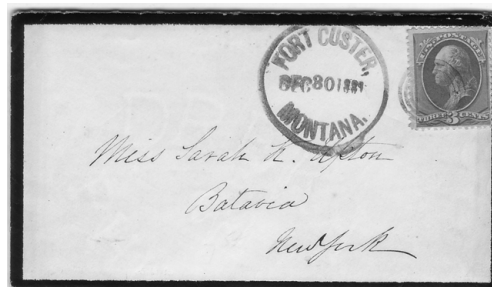 FORT CUSTER,
DEC 30 1881
MONTANA.
U.S. POSTAGE
THREE 3 CENTS
Miss Sarah K. Upton
Batavia
New York